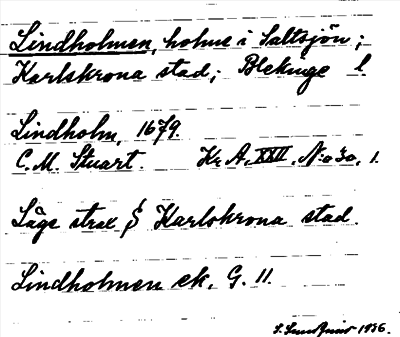 Lindholmen, holme i Saltsjön;
Karlskrona stad; Blekinge l
Lindholm, 1679
C.M. Stuart. Kr A, XXII, N:o 30, 1.
Läge strax S Karlskrona stad.
Lindholmen ek. G. 11.
1936.